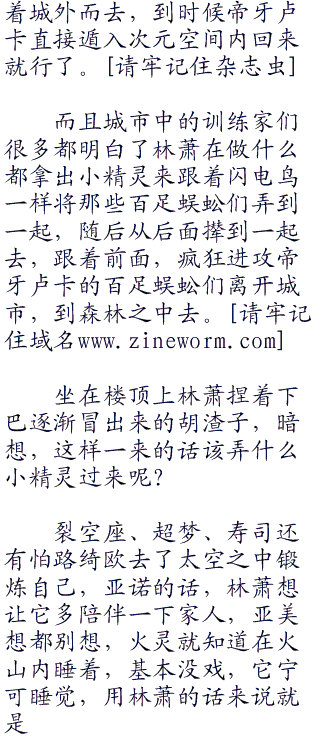 着城外而去，到时候帝牙卢
卡直接遁入次元空间内回来
就行了。[请牢记住杂志虫]
而且城市中的训练家们
很多都明白了林萧在做什么
都拿出小精灵来跟着闪电鸟
一样将那些百足蜈蚣们弄到
一起，随后从后面撵到一起
去，跟着前面，疯狂进攻帝
牙卢卡的百足蜈蚣们离开城
市，到森林之中去。[请牢记
住域名www.zineworm.com]
坐在楼顶上林萧捏着下
巴逐渐冒出来的胡渣子，暗
想，这样一来的话该弄什么
小精灵过来呢？
裂空座、超梦、寿司还
有怕路绮欧去了太空之中锻
炼自己，亚诺的话，林萧想
让它多陪伴一下家人，亚美
想都别想，火灵就知道在火
山内睡着，基本没戏，它宁
可睡觉，用林萧的话来说就
是